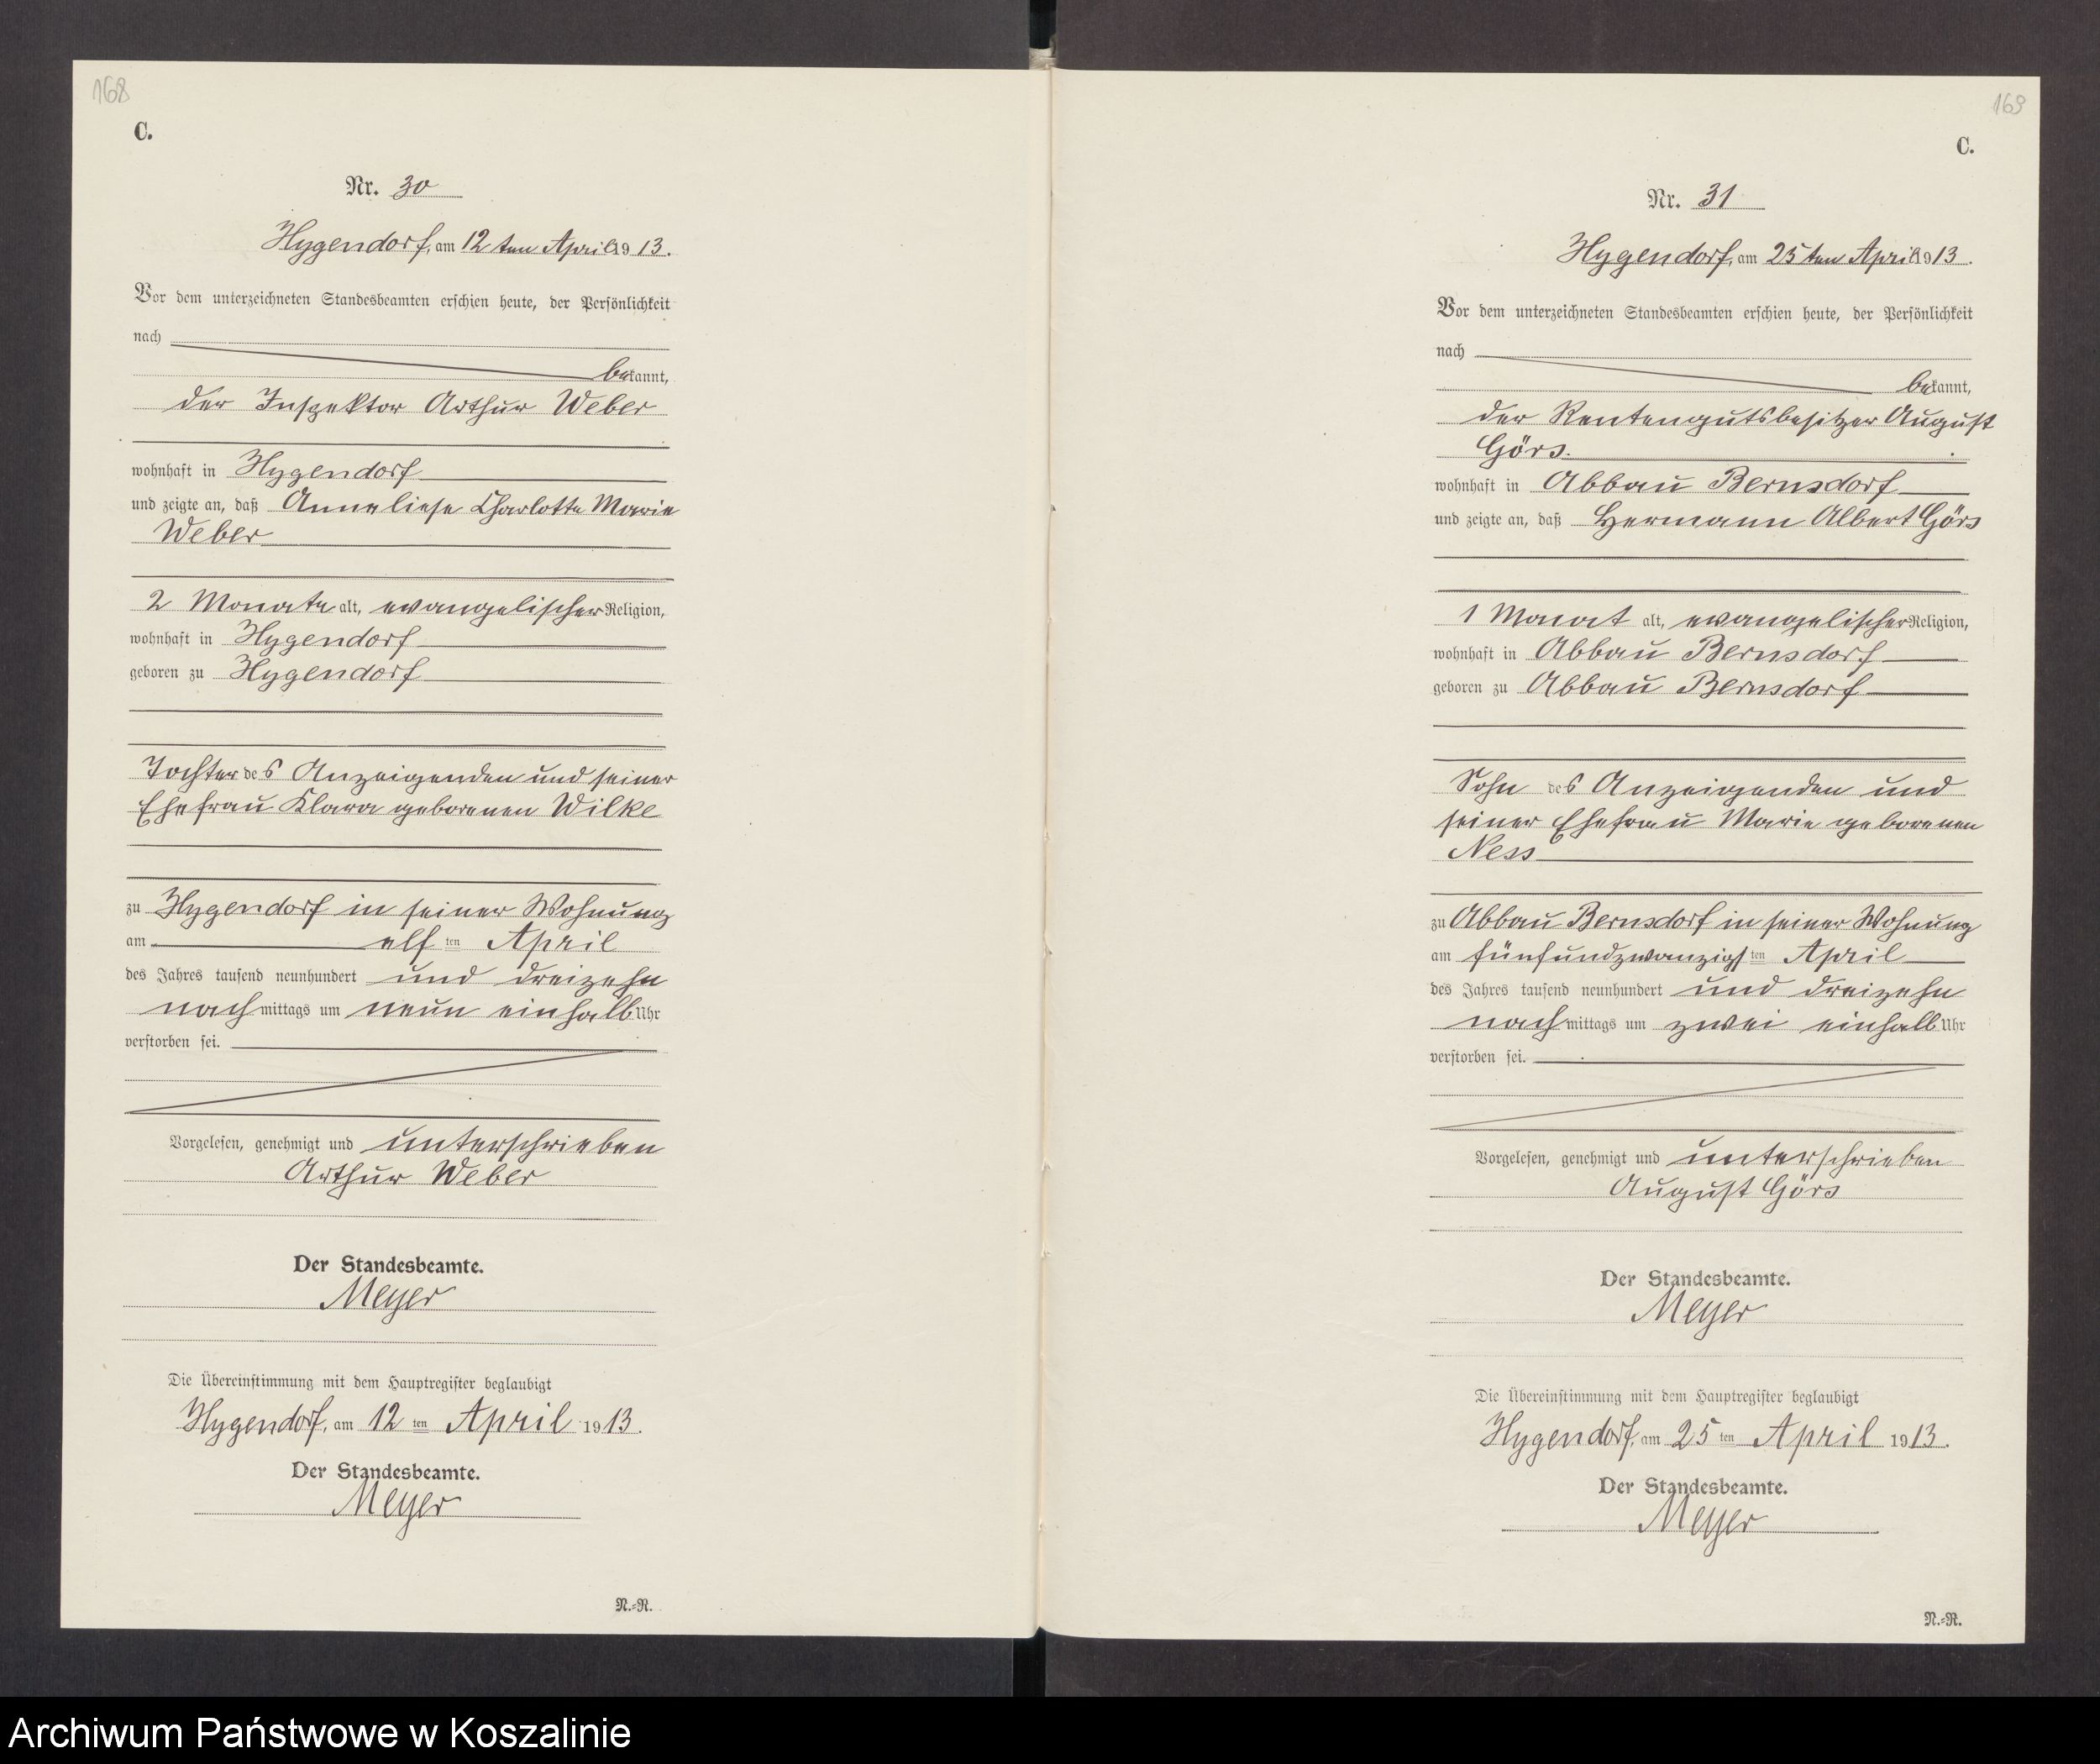 168
C.
Nr. 30
Hygendorf, am 12 ten April 1913.
Vor dem unterzeichneten Standesbeamten erschien heute, der Persönlichkeit
nach
bekannt,
der Inspektor Arthur Weber
wohnhaft in Hygendorf
und zeigte an, daß Anneliese Charlotte Marie
Weber
2 Monate alt, evangelischer Religion,
wohnhaft in Hygendorf
geboren zu Hygendorf
Tochter des Anzeigenden und seiner
Ehefrau Klara geborenen Wilke
zu Hygendorf in seiner Wohnung
am elf ten April
des Jahres tausend neunhundert und dreizehn
nachmittags um neun einhalb Uhr
verstorben sei.
Vorgelesen, genehmigt und unterschrieben
Arthur Weber
Der Standesbeamte.
Meyer
Die Übereinstimmung mit dem Hauptregister beglaubigt
Hygendorf, am 12 ten April 1913.
Der Standesbeamte.
Meyer
N.=R.
169
C.
Nr. 31
Hygendorf, am 25 ten April 1913.
Vor dem unterzeichneten Standesbeamten erschien heute, der Persönlichkeit
nach
bekannt,
der Rentengutsbesitzer August
Görs.
wohnhaft in Abbau Bernsdorf
und zeigte an, daß Hermann Albert Görs
1 Monat alt, evangelischer Religion,
wohnhaft in Abbau Bernsdorf
geboren zu Abbau Bernsdorf
Sohn des Anzeigenden und
seiner Ehefrau Marie geborenen
Ness
zu Abbau Bernsdorf in seiner Wohnung
am fünfundzwanzigsten April
des Jahres tausend neunhundert und dreizehn
nachmittags um zwei einhalb Uhr
verstorben sei.
Vorgelesen, genehmigt und unterschrieben
August Görs
Der Standesbeamte.
Meyer
Die Übereinstimmung mit dem Hauptregister beglaubigt
Hygendorf, am 25 ten April 1913.
Der Standesbeamte.
Meyer
N.=R.
Archiwum Państwowe w Koszalinie